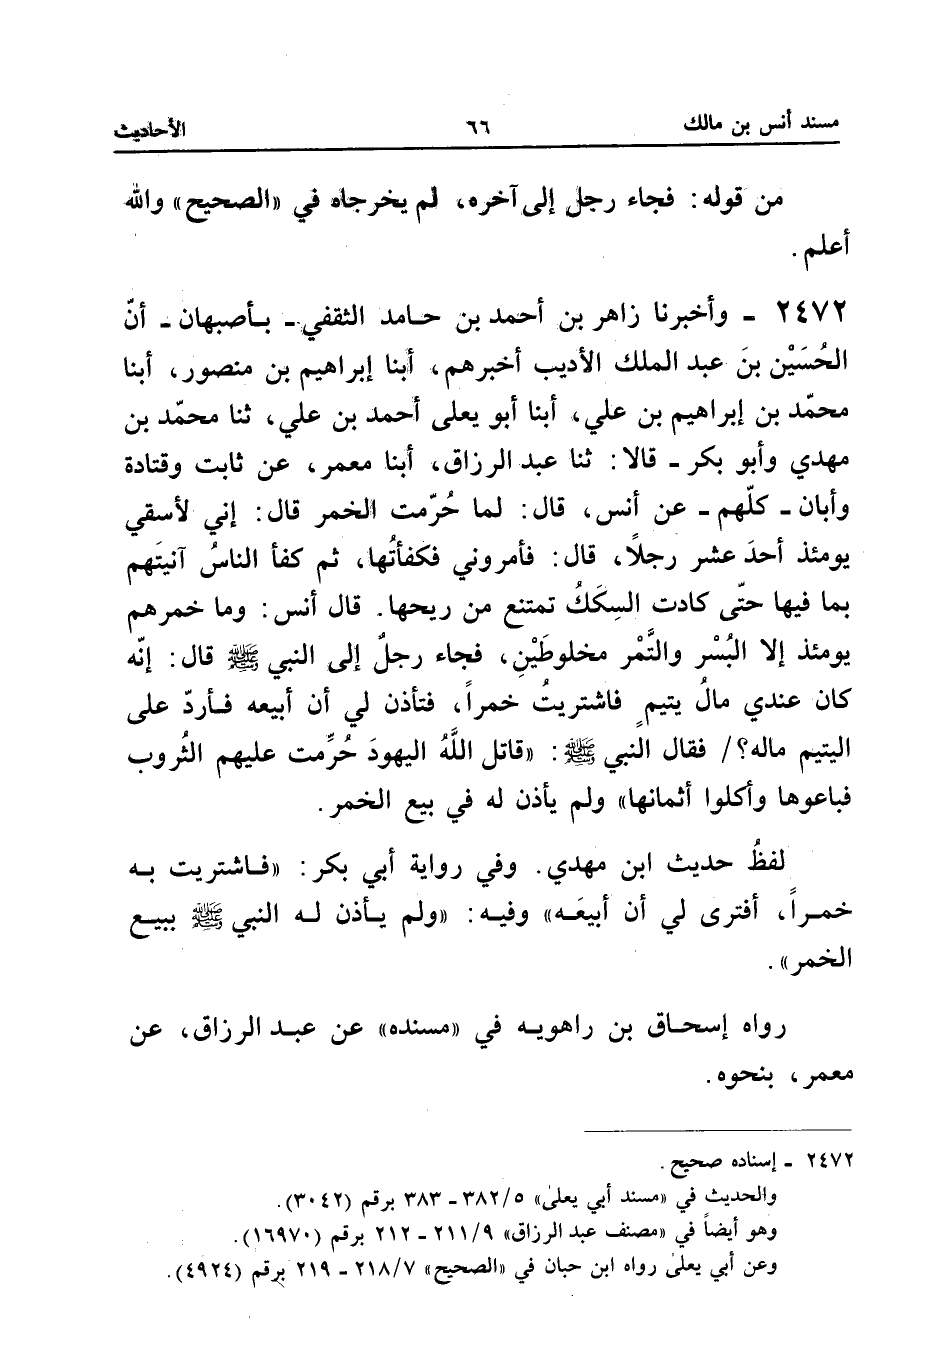 مسند أنس بن مالك ٦٦ الأحاديث
من قوله: فجاء رجل إلى آخره، لم يخرجاه في «الصحيح» والله
أعلم.
٢٤٧٢ - وأخبرنا زاهر بن أحمد بن حامد الثقفي - بأصبهان - أنّ
الحُسَيْن بنَ عبد الملك الأديب أخبرهم، أبنا إبراهيم بن منصور، أبنا
محمّد بن إبراهيم بن علي، أبنا أبو يعلى أحمد بن علي، ثنا محمّد بن
مهدي وأبو بكر - قالا: ثنا عبد الرزاق، أبنا معمر، عن ثابت وقتادة
وأبان - كلّهم - عن أنس، قال: لما حُرّمت الخمر قال: إني لأسقي
يومئذ أحدَ عشر رجلاً، قال: فأمروني فكفأتُها، ثم كفأ الناسُ آنيتَهم
بما فيها حتّى كادت السِكَكُ تمتنع من ريحها. قال أنس: وما خمرهم
يومئذ إلا البُسْر والتَّمْر مخلوطَيْنِ، فجاء رجلٌ إلى النبي ﷺ قال: إنّه
كان عندي مالُ يتيمٍ فاشتريتُ خمراً، فتأذن لي أن أبيعه فأردّ على
اليتيم ماله؟/ فقال النبي ﷺ: «قاتل اللَّهُ اليهودَ حُرِّمت عليهم الثُروب
فباعوها وأكلوا أثمانها» ولم يأذن له في بيع الخمر.
لفظُ حديث ابن مهدي. وفي رواية أبي بكر: «فاشتريت به
خمراً، أفترى لي أن أبيعَه» وفيه: «ولم يأذن له النبي ﷺ ببيع
الخمر».
رواه إسحاق بن راهويه في «مسنده» عن عبد الرزاق، عن
معمر، بنحوه.
٢٤٧٢ - إسناده صحيح.
والحديث في «مسند أبي يعلىٰ» ٣٨٢/٥ - ٣٨٣ برقم (٣٠٤٢).
وهو أيضاً في «مصنف عبد الرزاق» ٢١١/٩ - ٢١٢ برقم (١٦٩٧٠).
وعن أبي يعلىٰ رواه ابن حبان في «الصحيح» ٢١٨/٧ - ٢١٩ برقم (٤٩٢٤).